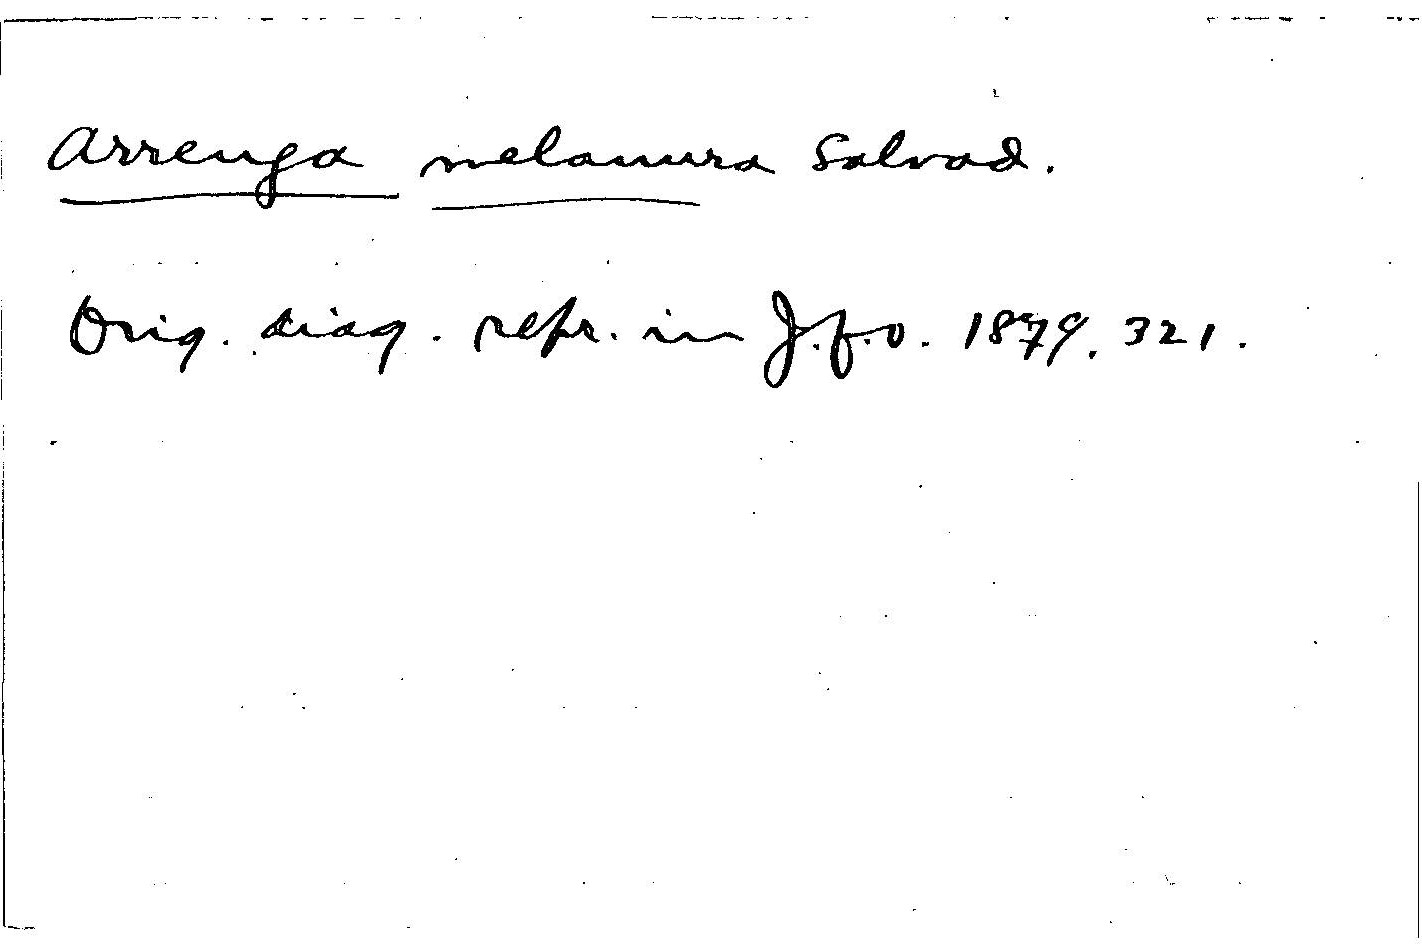 Arrenga melanura Salvad.
Orig. diag. repr. in J.f.O. 1879. 321.